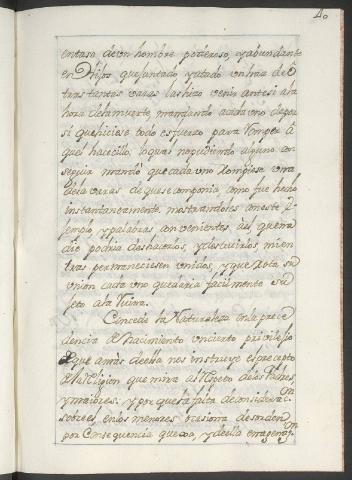 40
en casa de un hombre poderoso, y abundante
en Hijos que juntado, y atado un haz de
tras tantas varas las hizo venir ante si a la
hora de la muerte, mandando a cada uno de por
sí que hiciese todo esfuerzo para romper a
quel hacecillo, lo qual no pudiendo alguno con
seguir mandó que cada uno rompiese una
de la varas de que se componia, como fue hecho
instantaneamente, mostrandoles con este
emplo, y palabras convenientes, que
die podria deshacerlos, y destruirlos, mien
tras permaneciesen unidos, y que rota su
union cada uno quedaria facilmente su
jeto a la ruina.
Concede la Naturaleza en la prece
dencia de Nacimiento un cierto privilegio
que amas de ella nos instruye el precepto
de la Religion que mira al respeto de los Padres,
y maiores: y por que la falta de consideraci
sobre el en los menores ocasiona desorden
por consequencia quexa, y de ella